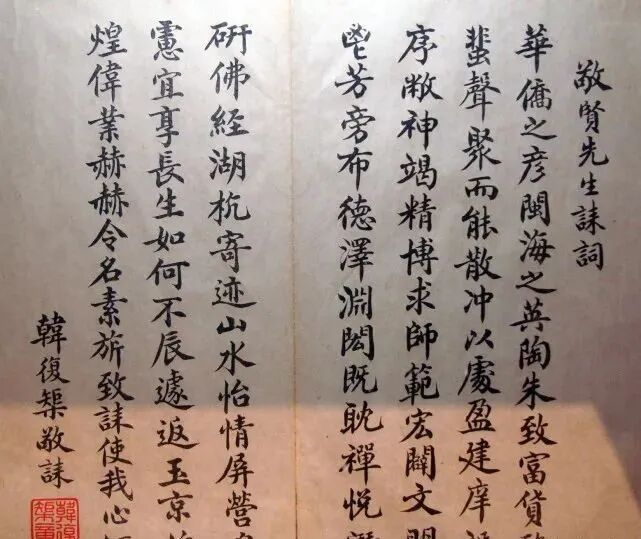 敬賢先生誄詞
華僑之彦閩海之英陶朱致富貨
蜚聲聚而能散冲以處盈建庠
序敝神竭精博求師範宏闢文
鬯芳旁布德澤淵閎既耽禪悦
研佛經湖杭寄迹山水怡情屏營
憲宜享長生如何不辰遽返玉京
煌偉業赫赫令名素旂致誄使我心
韓復榘敬誄